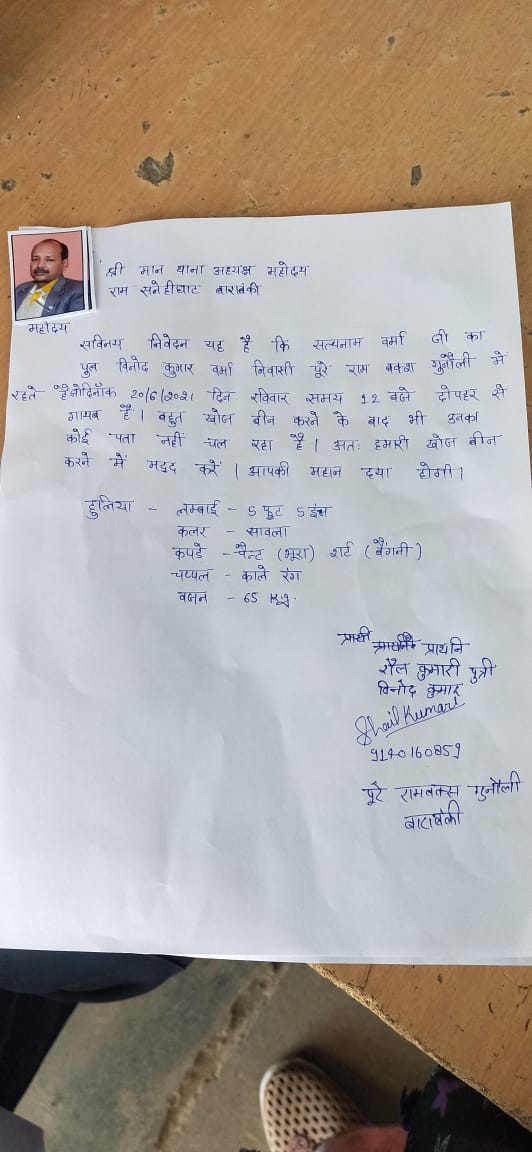 श्री मान थाना अध्यक्ष महोदय
राम सनेहीघाट बाराबंकी
महोदय
सविनय निवेदन यह है कि सत्यनाम वर्मा जी का
पुत्र विनोद कुमार वर्मा निवासी पूरे राम बक्श गुनौली में
रहते है जो दिनाँक 20/6/2021 दिन रविवार समय 12 बजे दोपहर से
गायब है। बहुत खोज बीन करने के बाद भी उनका
कोई पता नहीं चल रहा है। अतः हमारी खोज बीन
करने में मदुद करें। आपकी महान दया होगी।
हुलिया - लम्बाई - 5 फुट 5 इंच
कलर - सावला
कपडे - पैन्ट (भूरा) शर्ट (बैंगनी)
चप्पल - काले रंग
वजन - 65 Kg.
प्रार्थी प्रार्थनि
शैल कुमारी पुत्री
विनोद कुमार
Shail Kumari
9140160859
पूरे रामबक्स गुनौली
बाराबंकी